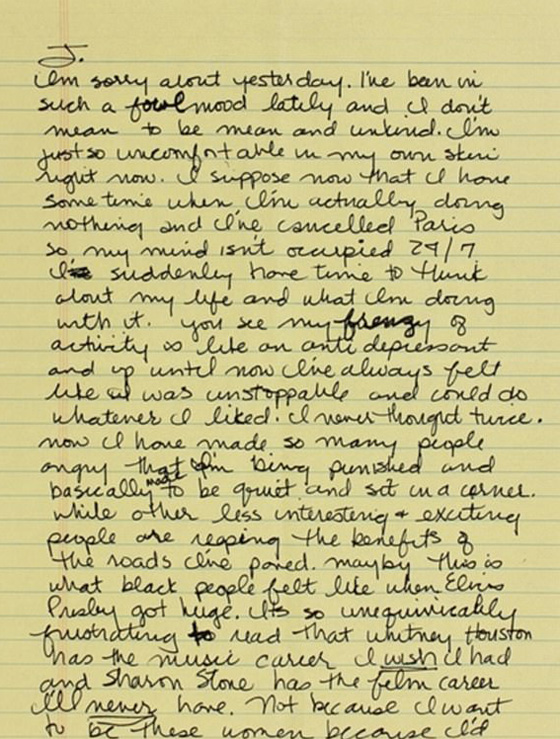 J.
I'm sorry about yesterday. I've been in
such a fowl mood lately and I don't
mean to be mean and unkind. I'm
just so uncomfortable in my own skin
right now. I suppose now that I have
some time when I'm actually doing
nothing and I've cancelled Paris
so my mind isn't occupied 24/7
I suddenly have time to think
about my life and what I'm doing
with it. you see my frenzy of
activity is like an anti depressant
and up until now I've always felt
like I was unstoppable and could do
whatever I liked. I never thought twice.
now I have made so many people
angry that I'm being punished and
basically made to be quiet and sit in a corner.
while other less interesting + exciting
people are reaping the benefits of
the roads I've paved. mayby this is
what black people felt like when Elvis
Presley got huge. Its so unequivicably
frustrating to read that whitney Houston
has the music career I wish I had
and Sharon Stone has the film career
I'll never have. Not because I want
to be these women because I'd